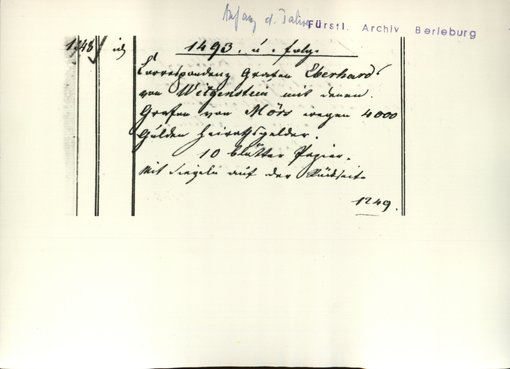 Anfang d. Jahres
Fürstl. Archiv Berleburg
1148
1493. u. folg.
Correspondenz Grafen Eberhard
von Witgenstein mit denen
Grafen von Mörs wegen 4000
Gulden Heirathsgelder.
10 Blätter Papier.
Mit Siegeln auf der Rückseite
1249.